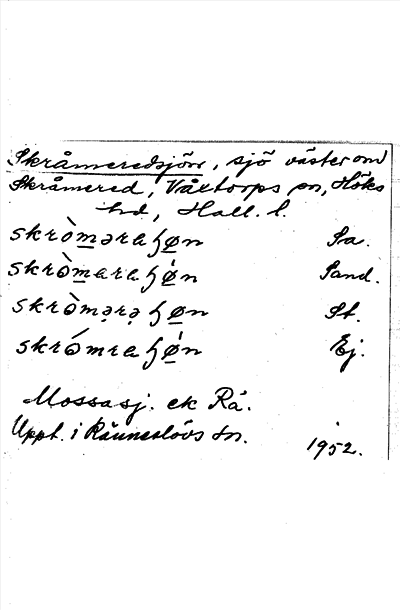 Skråmeredsjön, sjö väster om
Skråmered, Våxtorps sn, Höks
hd, Hall. l.
skròm̲ərəɧø̲n Sa.
skròm̲araɧǿ̲n Sand.
skròmə̣rə̣ɧø̲n St.
skrómraɧǿ̲n Ej.
Mossasj. ek Rä.
Uppt. i Ränneslövs sn. 1952.